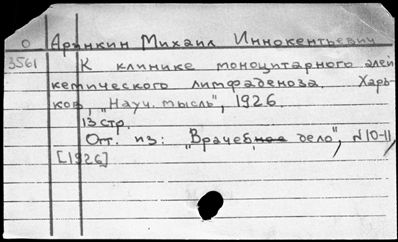 О Аринкин Михаил Иннокентьевич
3561 К клинике моноцитарного алей
кемического лимфаденоза. Харь-
ков, "Науч. мысль", 1926.
13 стр.
Отт. из: "Врачебное дело", №10-11
[1926]